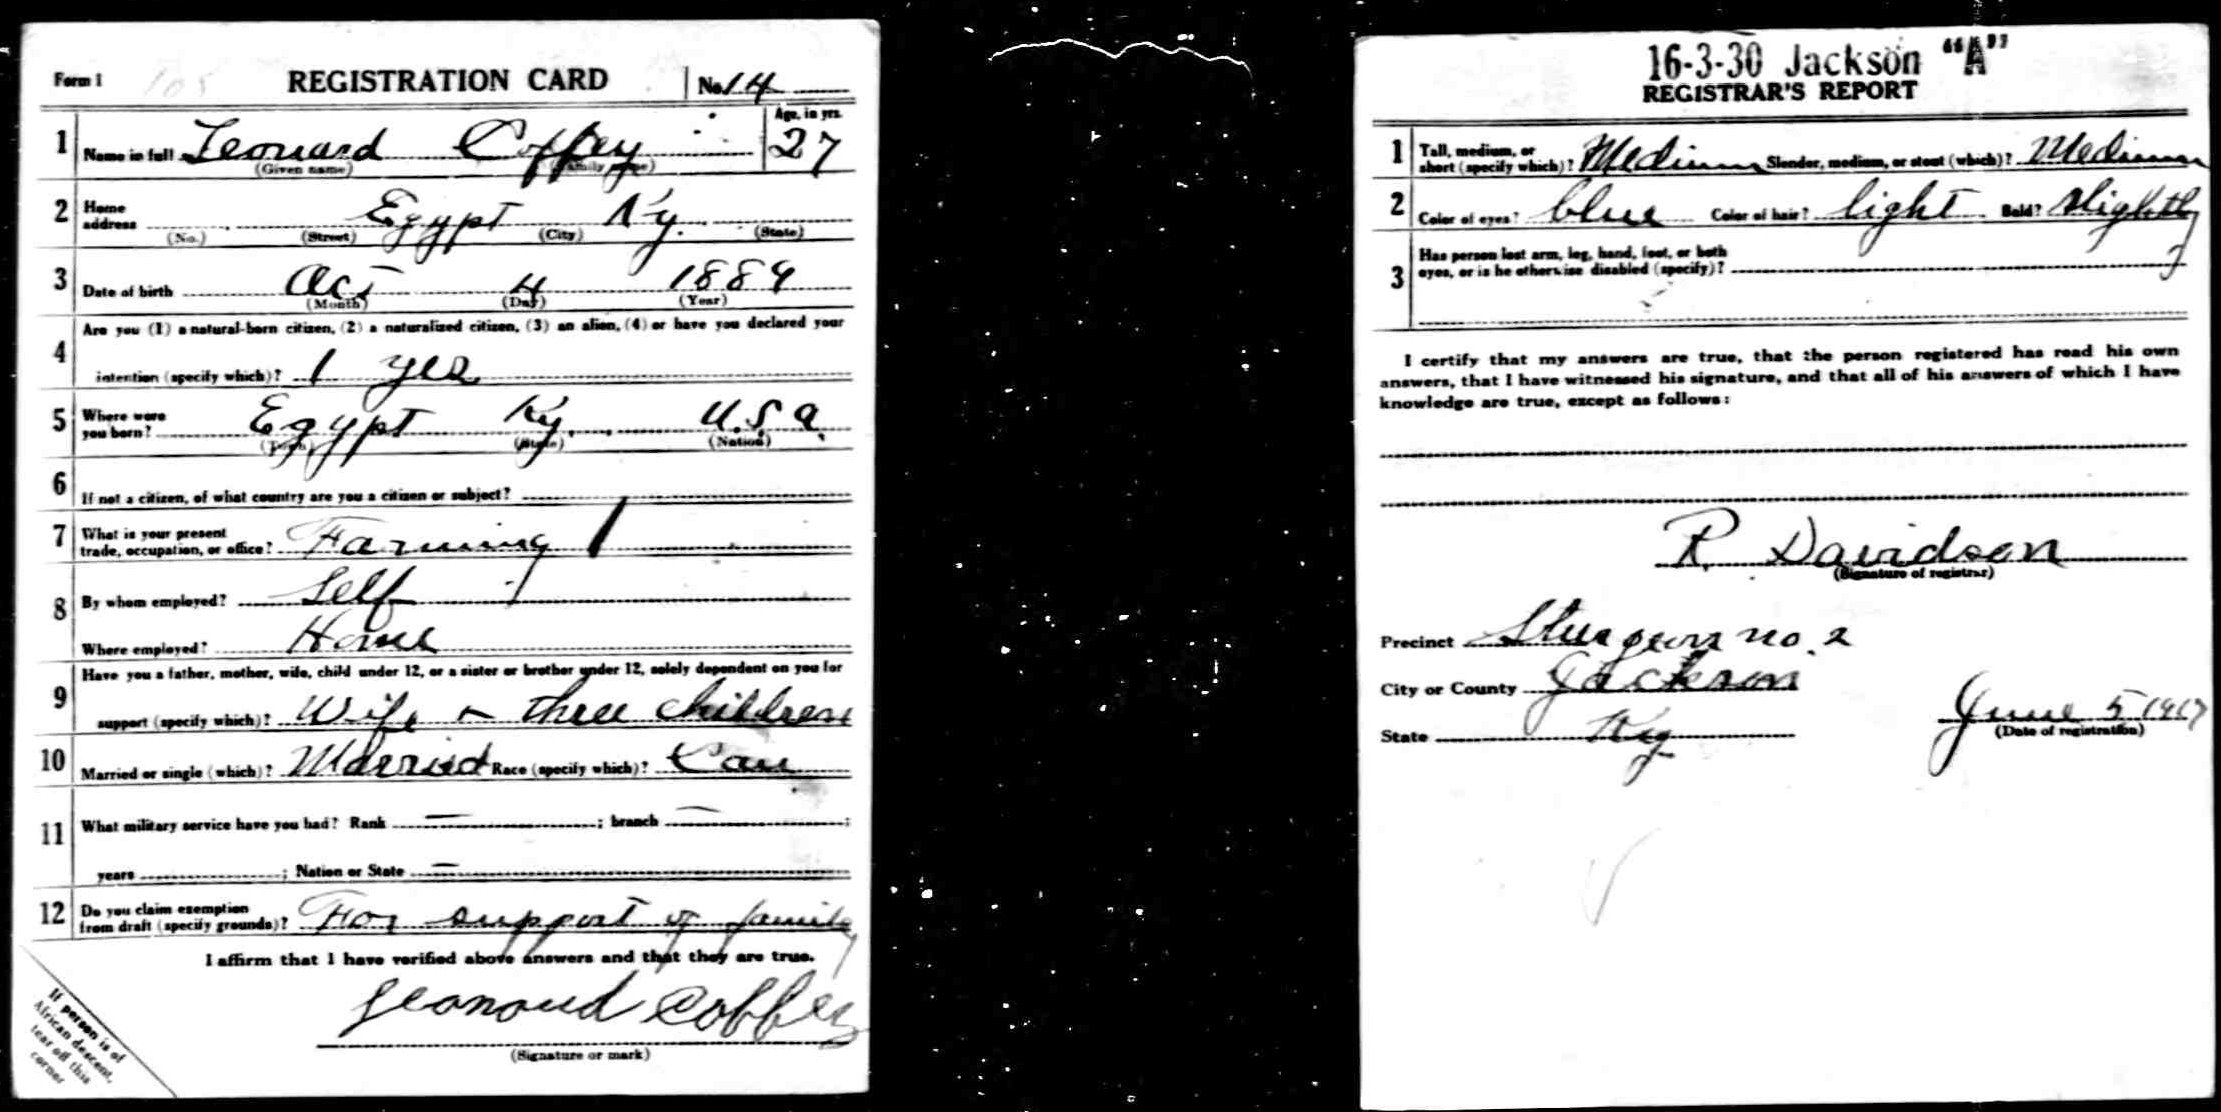 Form 1 105 REGISTRATION CARD No. 14
Age, in yrs.
1 Name in full Leonard Coffey 27
(Given name) (Family name)
2 Home address Egypt Ky.
(No.) (Street) (City) (State)
3 Date of birth Oct 4 1889
(Month) (Day) (Year)
Are you (1) a natural-born citizen, (2) a naturalized citizen, (3) an alien, (4) or have you declared your
4 intention (specify which)? 1 yes
5 Where were you born? Egypt Ky. U.S.a.
(Town) (State) (Nation)
6 If not a citizen, of what country are you a citizen or subject?
7 What is your present
trade, occupation, or office? Farming
8 By whom employed? Self
Where employed? Home
Have you a father, mother, wife, child under 12, or a sister or brother under 12, solely dependent on you for
9 support (specify which)? Wife & three children
10 Married or single (which)? Married Race (specify which)? Cau
11 What military service have you had? Rank — ; branch — ;
years ; Nation or State —
12 Do you claim exemption
from draft (specify grounds)? For support of family
I affirm that I have verified above answers and that they are true.
Leonard Coffey
(Signature or mark)
If person is of
African descent,
tear off this
corner
16-3-30 Jackson "A"
REGISTRAR'S REPORT
1 Tall, medium, or
short (specify which)? Medium Slender, medium, or stout (which)? Medium
2 Color of eyes? blue Color of hair? light Bald? Slightly
Has person lost arm, leg, hand, foot, or both
3 eyes, or is he otherwise disabled (specify)?
I certify that my answers are true, that the person registered has read his own
answers, that I have witnessed his signature, and that all of his answers of which I have
knowledge are true, except as follows:
R. Davidson
(Signature of registrar)
Precinct Sturgeon no. 2
City or County Jackson
State Ky
June 5 1917
(Date of registration)